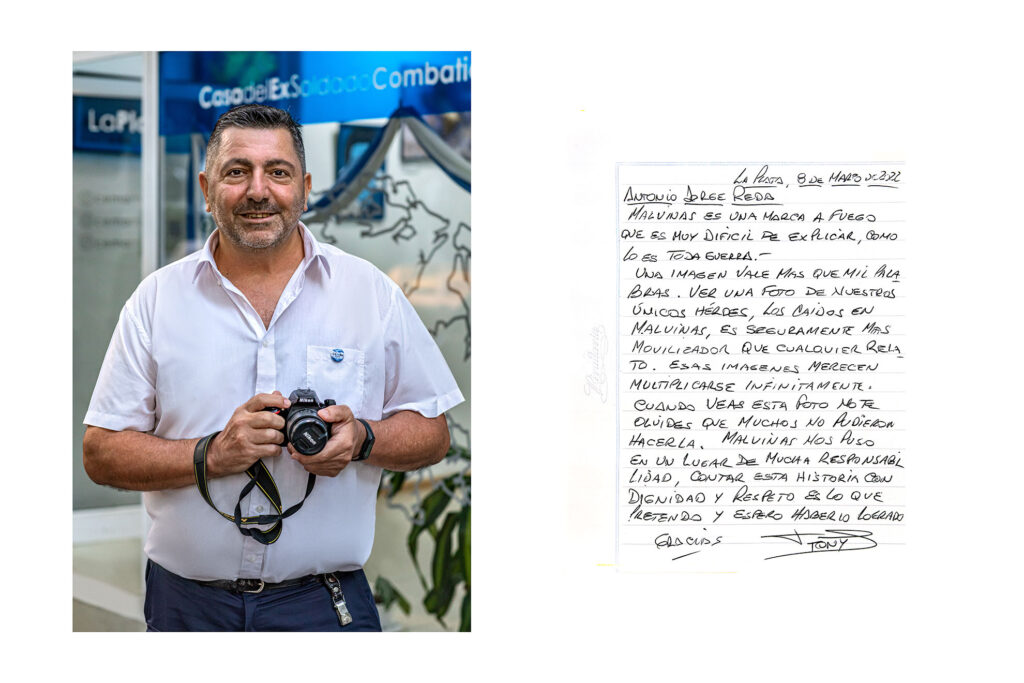 CasadelExSoldadoCombati
LaPla
Nikon
Nikon
LA PLATA, 8 DE MARZO 2022
ANTONIO JORGE REDA
MALVINAS ES UNA MARCA A FUEGO
QUE ES MUY DIFICIL DE EXPLICAR, COMO
LO ES TODA GUERRA.-
UNA IMAGEN VALE MAS QUE MIL PALA
BRAS. VER UNA FOTO DE NUESTROS
ÚNICOS HÉROES, LOS CAIDOS EN
MALVINAS, ES SEGURAMENTE MAS
MOVILIZADOR QUE CUALQUIER RELA
TO. ESAS IMAGENES MERECEN
MULTIPLICARSE INFINITAMENTE.
CUANDO VEAS ESTA FOTO NO TE
OLVIDES QUE MUCHOS NO PUDIERON
HACERLA. MALVINAS NOS PUSO
EN UN LUGAR DE MUCHA RESPONSABI
LIDAD, CONTAR ESTA HISTORIA CON
DIGNIDAD Y RESPETO ES LO QUE
PRETENDO Y ESPERO HABERLO LOGRADO
GRACIAS
TONY